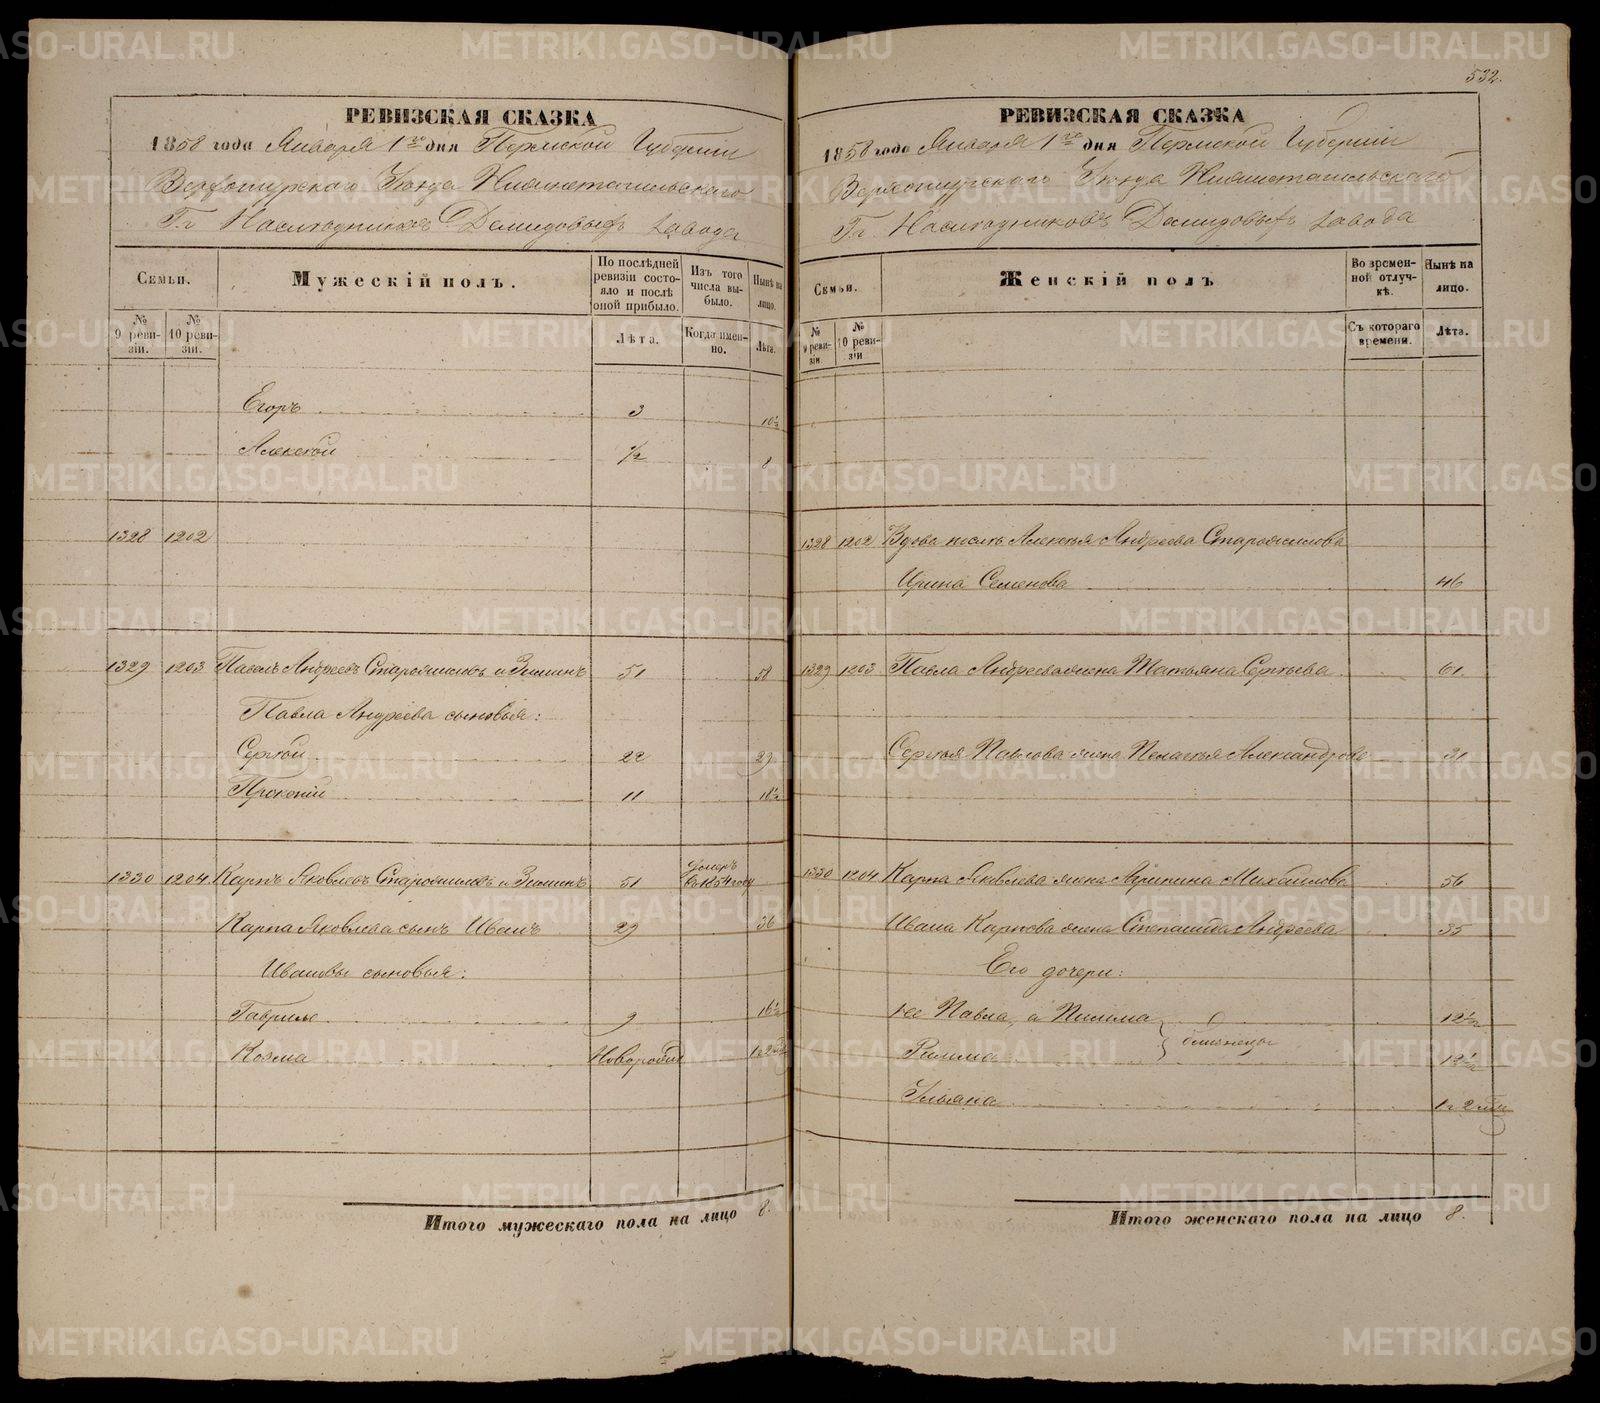 532.
РЕВИЗСКАЯ СКАЗКА
1858 года Января 1го дня Пермской Губернии
Верхотурскаго Уезда Нижнетагильскаго
Гг. Наследниковъ Демидовыхъ завода
Семьи.
Мужескій полъ.
По послѣдней ревизіи состояло и послѣ оной прибыло.
Изъ того числа выбыло.
Нынѣ на лицо.
№ 9 ревизіи.
№ 10 ревизіи.
Лѣта.
Когда именно.
Лѣта.
Егоръ 3 10½
Алексѣй ½ 8
1328 1202
1329 1203 Павелъ Андреевъ Старожиловъ и Зиминъ 51 58
Павла Андреева сыновья:
Сергѣй 22 29
Прокопій 11
1330 1204 Карпъ Яковлевъ Старожиловъ и Зиминъ 51 Умеръ въ 1854 году
Карпа Яковлева сынъ Иванъ 29 36
Ивановы сыновья:
Гаврило 9 16½
Козма Новорожд
Итого мужескаго пола на лицо 8.
РЕВИЗСКАЯ СКАЗКА
1858 года Января 1го дня Пермской Губерніи
Верхотурскаго Уезда Нижнетагильскаго
Гг. Наследниковъ Демидовыхъ завода
Семьи.
Женскій полъ
Во временной отлучкѣ.
Нынѣ на лицо.
№ 9 ревизіи.
№ 10 ревизіи
Съ котораго времени.
Лѣта.
1328 1202 Вдова послѣ Алексѣя Андреева Старожилова
Ирина Семенова 46
1329 1203 Павла Андреева жена Татьяна Сергѣева 61.
Сергѣя Павлова жена Пелагѣя Александрова 31
1330 1204 Карпа Яковлева жена Агрипина Михайлова 56
Ивана Карпова жена Степанида Андреева 35
Его дочери:
не Павла, а 12½
близнецы
12½
Ульяна
Итого женскаго пола на лицо 8.
METRIKI.GASO-URAL.RU